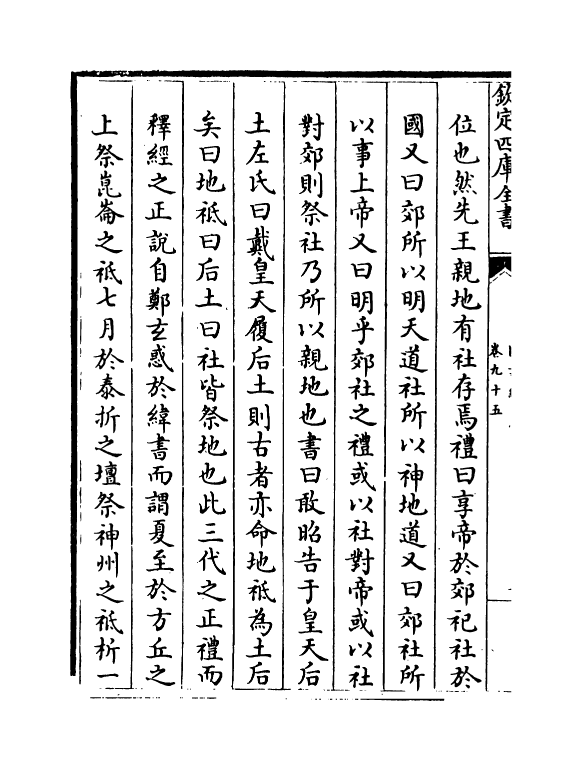 欽定四庫全書
卷九十五
位也然先王親地有社存焉禮曰享帝於郊祀社於
國又曰郊所以明天道社所以神地道又曰郊社所
以事上帝又曰明乎郊社之禮或以社對帝或以社
對郊則祭社乃所以親地也書曰敢昭告于皇天后
土左氏曰戴皇天履后土則古者亦命地祇為土后
矣曰地祇曰后土曰社皆祭地也此三代之正禮而
釋經之正說自鄭玄惑於緯書而謂夏至於方丘之
上祭崑崙之祇七月於泰折之壇祭神州之祇析一